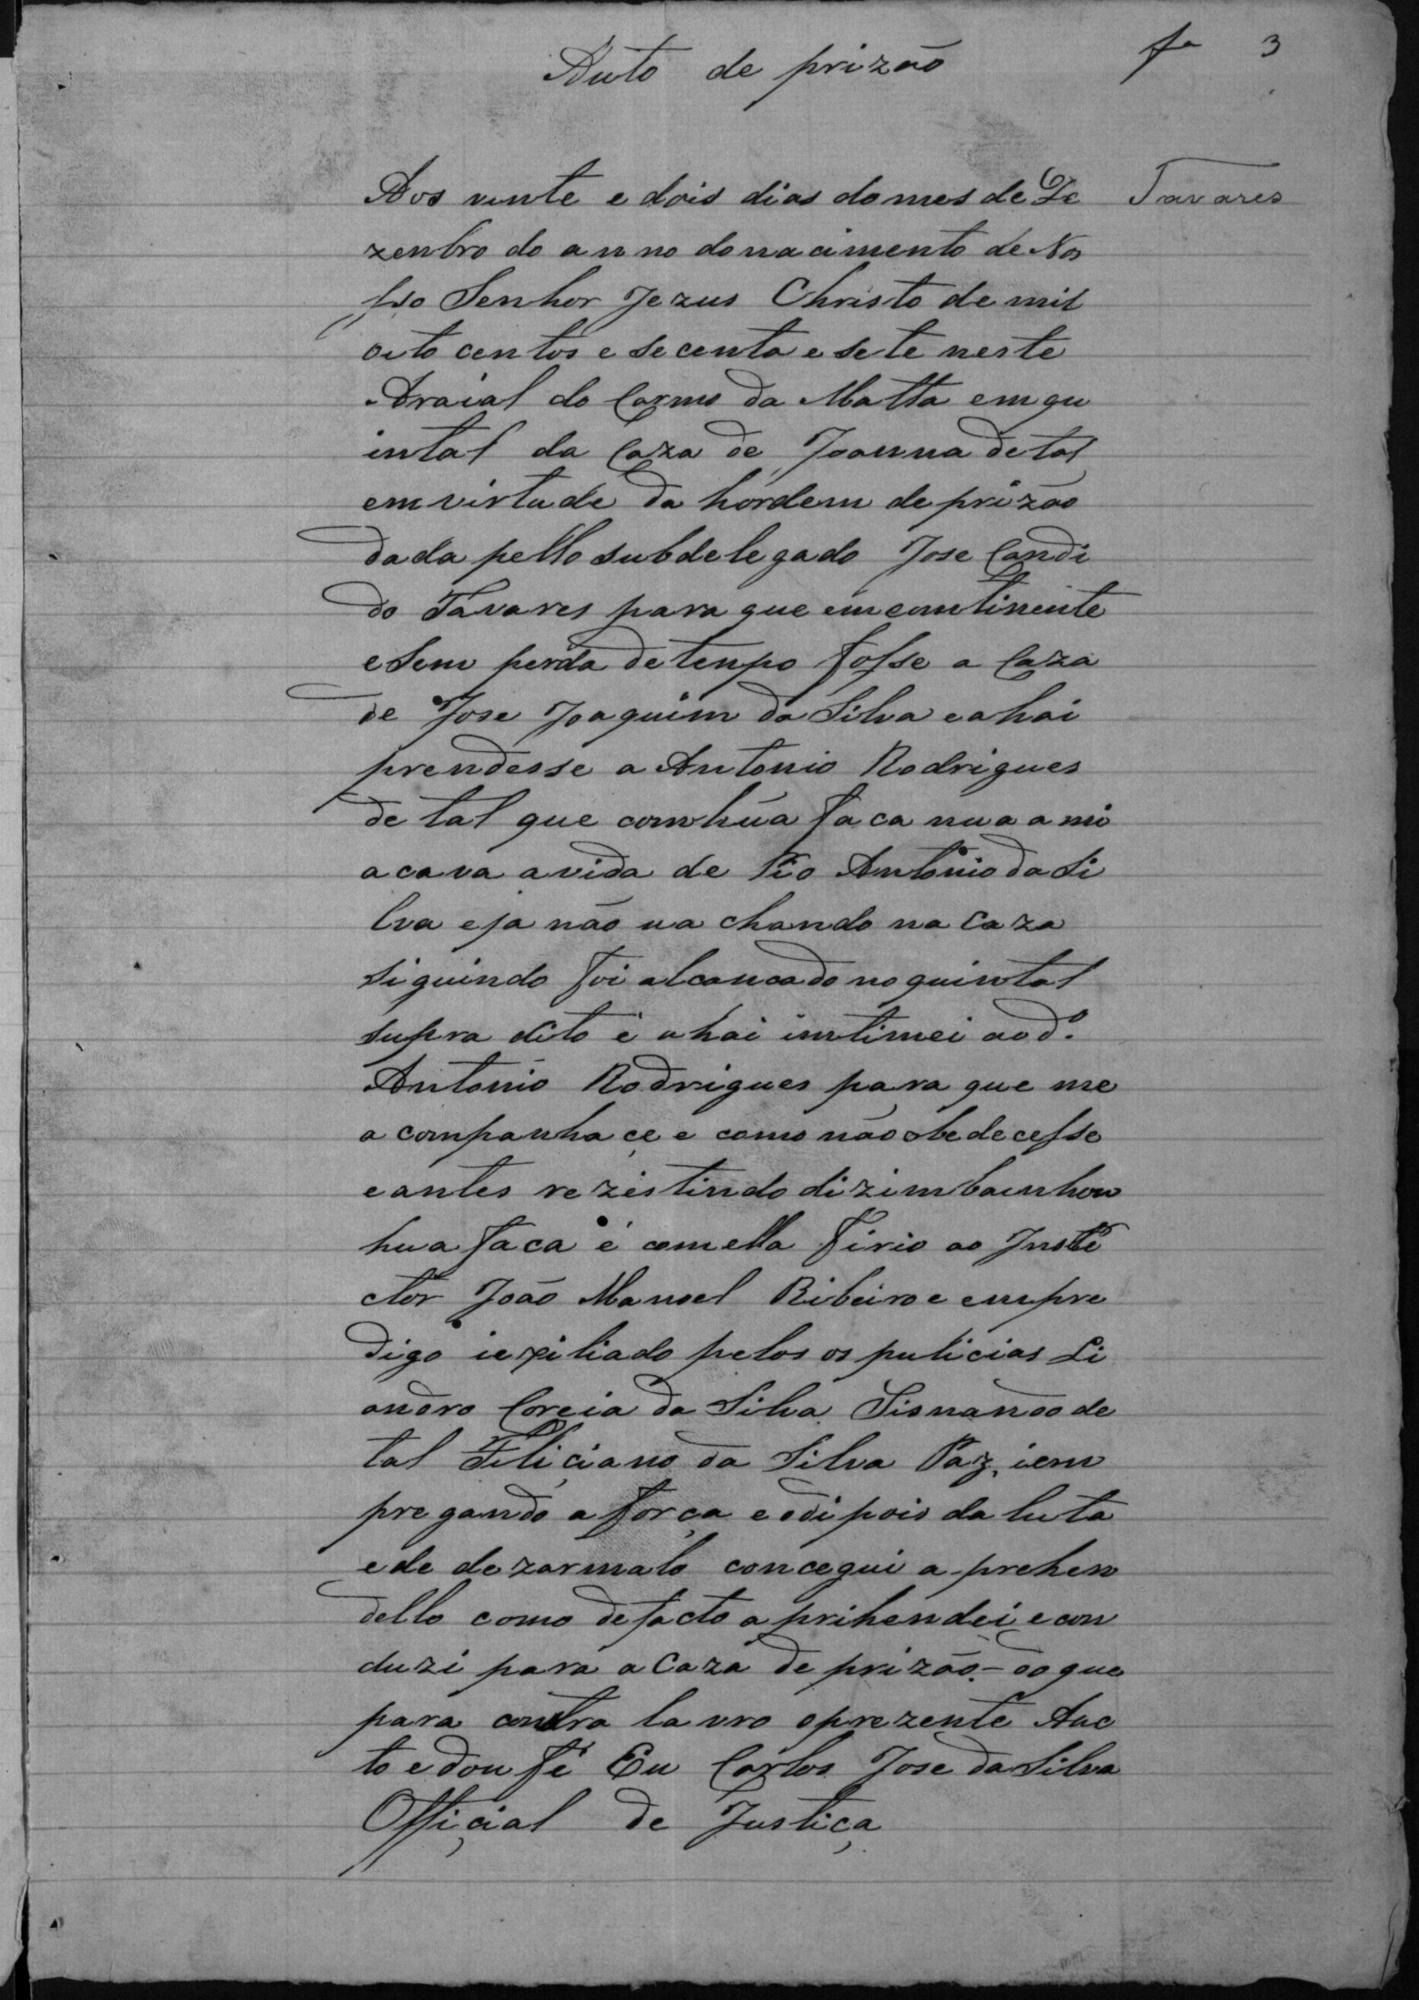 Auto de prizão
fª 3
Aos vinte e dois dias do mes de De
Tavares
zenbro do anno do nacimento de Nos
sso Senhor Jezus Christo de mil
oito centos e secenta e sete neste
Araial do Carmo da Matta em qu
intal da Caza de Joanna de tal
em virtude da hordem de prizão
dada pello subdelegado Jose Candi
do Tavares para que emcontinente
e sem perda de tenpo fosse a Caza
de Jose Joaquim da Silva e ahai
prendesse a Antonio Rodrigues
de tal que com húa faca nua a mi
acava a vida de Pio Antonio da Si
lva e ja não ua chando na Caza
siguindo foi alcancado no quintal
supra dito é ahai imtimei ao dº.
Antonio Rodrigues para que me
a companha çe e como não obedecesse
e antes rezistindo dizimbainhou
hua faca é com ella firio ao Inspé
ctor João Manoel Ribeiro e empre
digo iexiliado pelos os pulicias Li
andro Correia da Silva Sisnando de
tal Feliçiano da Silva Paz, iem
pregando a força e odipois da luta
e de dezarmalo concegui a prehen
dello como de facto a prihendei e con
duzi para a Caza de prizão - do que
para contra lavro o prezente Auc
to e dou fé Eu Carlos Jose da Silva
Offiçial de Justiça